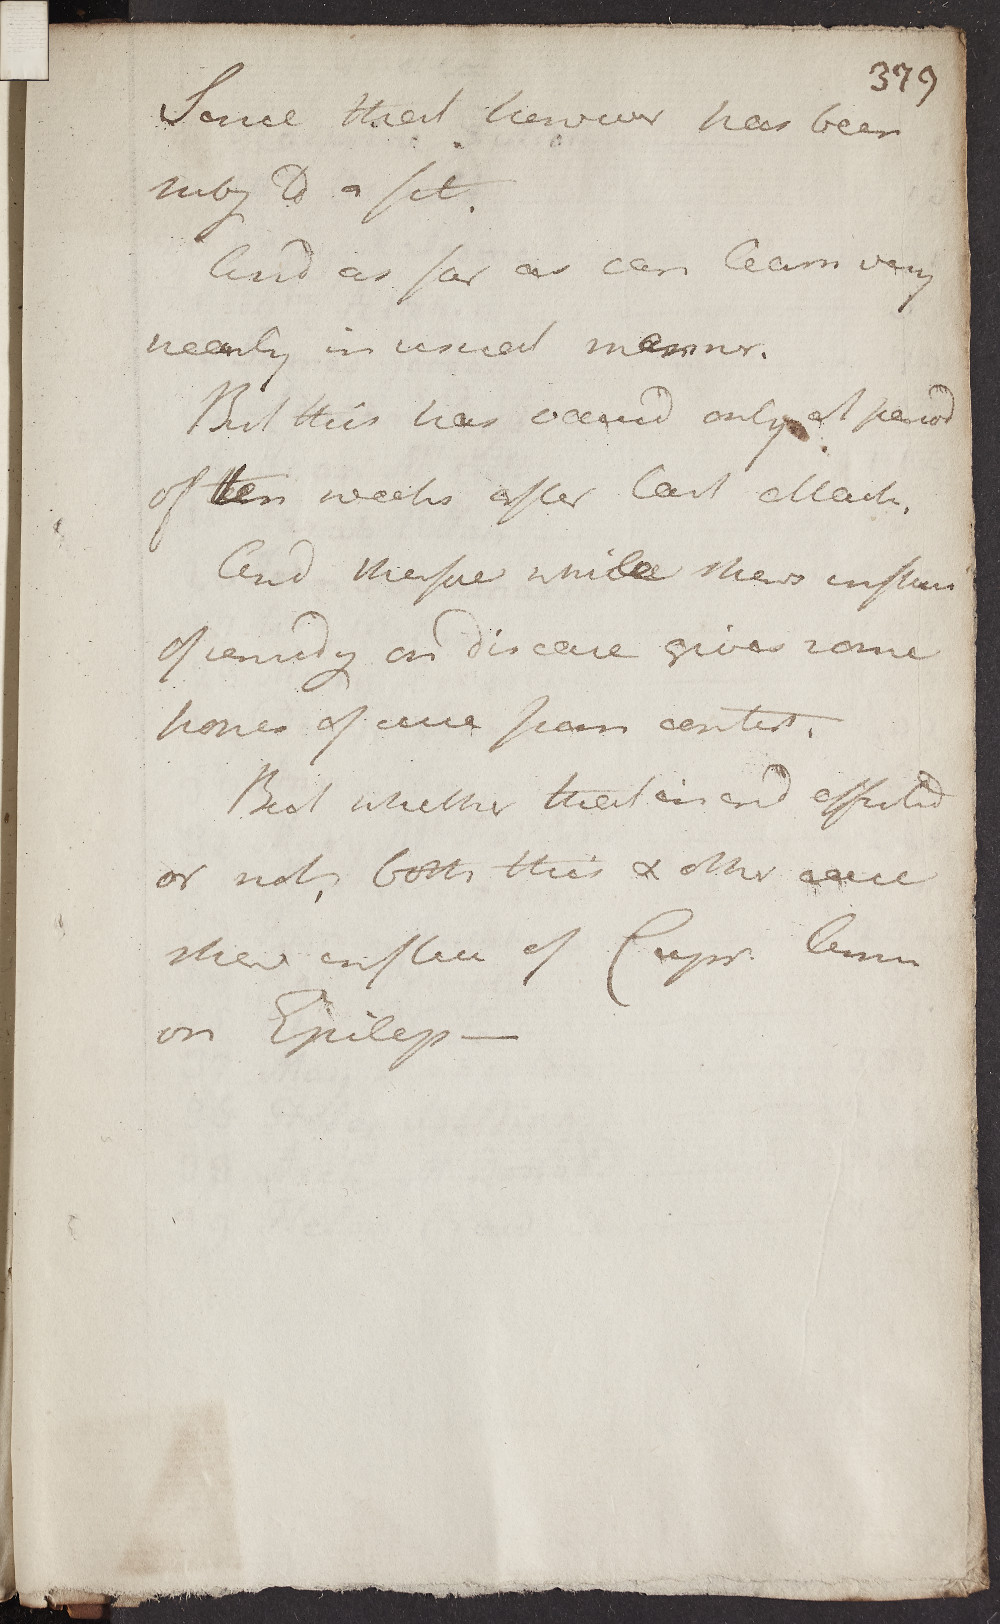 379
Since that however has been
subj d to a fit.
And as far as can learn very
nearly in usual manner.
But this has occurrd only at period
of ten weeks after last attack.
And therfore while shews influen
of remedy on disease gives some
hopes of cure from contin.
But whether that in end effectd
or not, both this & other case
shew influen of Cupr. Amm
on Epilep—